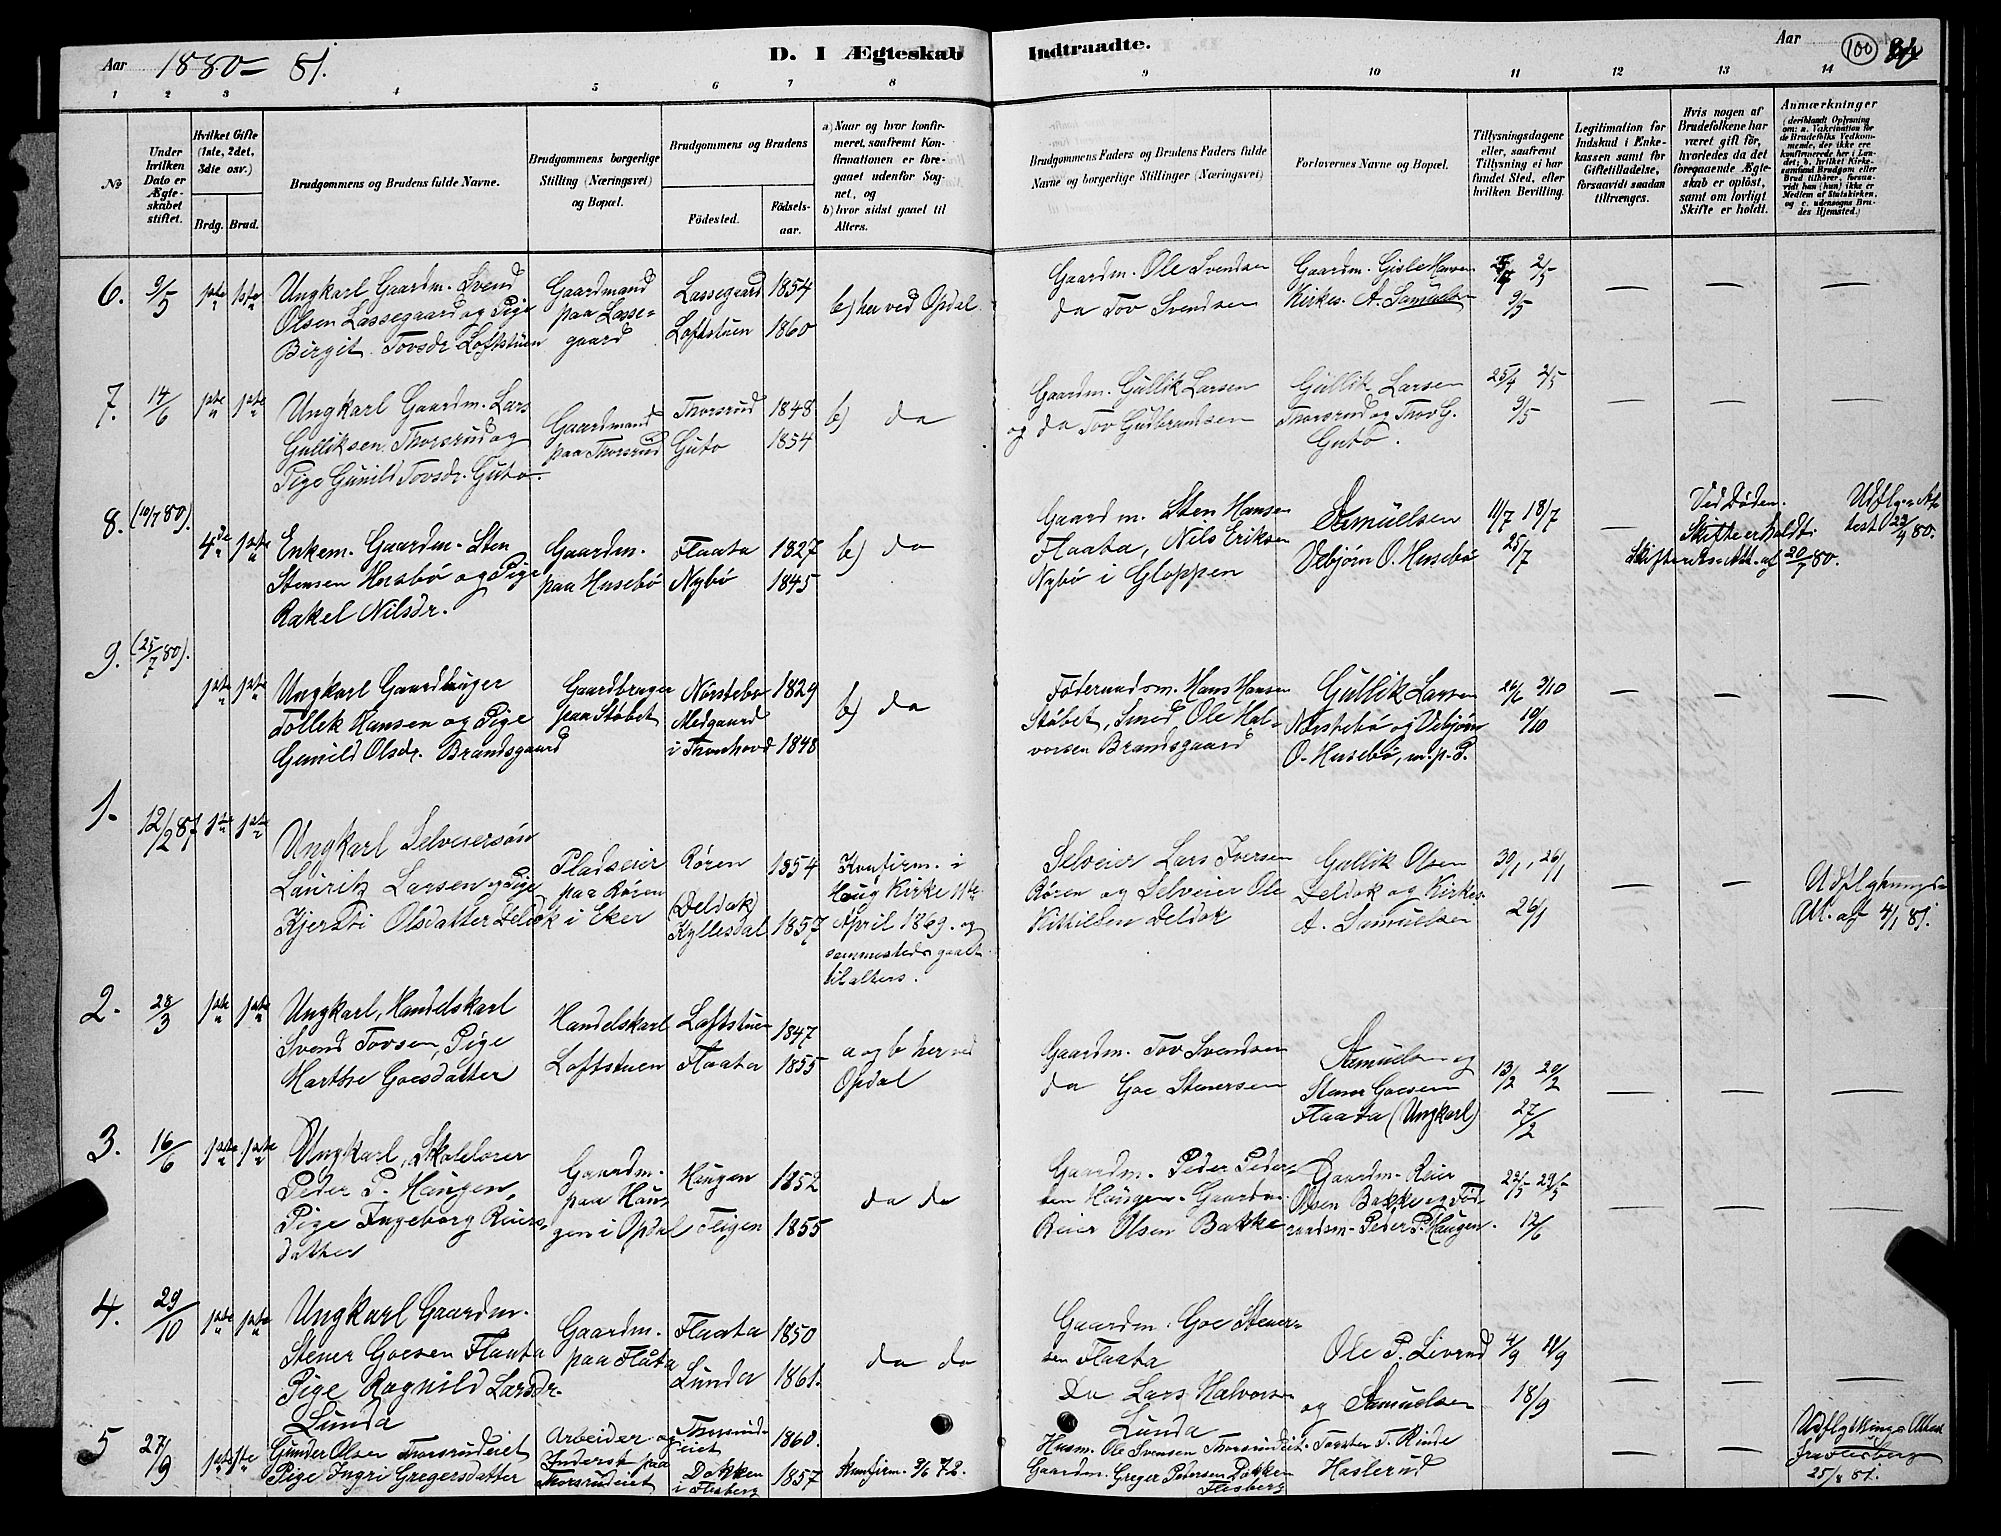 Aar 1880-81.
D. I Ægteskab Indtraadte.
Aar
100
1 2 3 4 5 6 7 8 9 10 11 12 13 14
No
Under hvilken Dato er Ægteskabet stiftet.
Hvilket Gifte (1ste, 2det, 3die osv.)
Brdg. Brud.
Brudgommens og Brudens fulde Navne.
Brudgommens borgerlige Stilling (Næringsvei) og Bopæl.
Brudgommens og Brudens
Fødested.
Fødsels-aar.
a) Naar og hvor konfirmeret, saafremt Konfirmationen er foregaaet udenfor Sognet, og
b) hvor sidst gaaet til Alters.
Brudgommens Faders og Brudens Faders fulde Navne og borgerlige Stillinger (Næringsvei)
Forlovernes Navne og Bopæl.
Tillysningsdagene eller, saafremt Tillysning ei har fundet Sted, efter hvilken Bevilling.
Legitimation for Indskud i Enkekassen samt for Giftetilladelse, forsaavidt saadan tiltrænges.
Hvis nogen af Brudefolkene har været gift før, hvorledes da det foregaaende Ægteskab er opløst, samt om lovligt Skifte er holdt.
Anmærkninger
(deriblandt Oplysning om: a. Vakcination for de Brudefolks Vedkommende, der ikke ere konfirmerede her i Landet; b. hvilket Kirkesamfund Brudgom eller Brud tilhører, forsaavidt han (hun) ikke er Medlem af Statskirken, og c. udensogns Brudes Hjemsted.)
6. 9/5 1ste 1ste
Ungkarl Gaardm. Svend
Olsen Lassegaard og Pige
Birgit Tovsdr. Loftstuen
Gaardmand
paa Lasse-
gaard
Lassegaard 1854
Loftstuen 1860
b) her ved Opdal.
Gaardm. Ole Svendsen
da Tov Svendsen
Gaardm. Gisle Hansen
Kirkes. A. Samuelsen
2/5
9/5
7. 14/6 1ste 1ste
Ungkarl Gaardm. Lars
Gulliksen Thorsrud og
Pige Gunild Tovsdr. Guto.
Gaardmand
paa Thorsrud
Thorsrud 1848
Guto 1854
b) da
Gaardm. Gullik Larsen
og da Tov Gudbrandsen
Gullik Larsen
Thorsrud og Thov G.
Guto.
25/4 2/5
9/5
8. (10/7 80). 4de 1ste
Enkem. Gaardm. Sten
Stensen Horsbø og Pige
Rakel Nilsdr.
Gaardm.
paa Husebø
Flaata 1827
Nybø 1845
b) da
Gaardm. Sten Hansen
Flaata, Nils Eriksen
Nybø i Gloppen
Samuelsen
Vebjørn O. Husebø
11/7 18/7
25/7
Ved Døden.
Skifte er holdt.
Skifteretens Att. af 20/7 80.
9. (25/7 80). 1ste 1ste
Ungkarl Gaardbruger
Tollek Hansen og Pige
Gunild Olsdr. Brandsgaard
Gaardbruger
paa Støbet
Nørstebø 1829
Medgaard
i Thunhovd 1848
b) da
Føderaadsm. Hans Hansen
Støbet, Smed Ole Hal-
vorsen Brandsgaard
Gullik Larsen
Nørstebø og Vebjørn
O. Husebø, m.p.P.
26/6 3/10
10/10
1. 12/2 81. 1ste 1ste
Ungkarl Selveiersøn
Lauritz Larsen og Pige
Kjersti Olsdatter Deldok
Pladseier
paa Røren
i Eker
Røren 1854
(Deldok)
Kyllesdal 1857
Konfirm. i
Haug Kirke 11te
April 1869. og
sammesteds gaaet
til alters.
Selveier Lars Iversen
Røren og Selveier Ole
Kittilsen Deldok
Gullik Olsen
Deldok og Kirkes.
A. Samuelsen
26/1
26/1
Udflytnings-
Att. af 4/1 81.
2. 28/3 1ste 1ste
Ungkarl, Handelskarl
Svend Tovsen, Pige
Marthe Goesdatter
Handelskarl
Loftstuen
Loftstuen 1847
Flaata 1855
a og b her ved
Opdal
Gaardm. Tov Svendsen
da Goe Stenersen
Samuelsen og
Stener Goesen
Flaata (Ungkarl)
13/2 20/2
27/2
3. 16/6 1ste 1ste
Ungkarl, Skolelærer
Peder P. Haugen,
Pige Ingeborg Reiers-
datter
Gaardm.
paa Hau-
gen i Opdal
Haugen 1852
Teigen 1855
da da
Gaardm. Peder Peder-
sen Haugen. Gaardm.
Reier Olsen Bakke
Gaardm. Reier
Olsen Bakke og Føde-
raadsm. Peder P. Haugen.
22/5 29/5
12/6
4. 29/10 1ste 1ste
Ungkarl Gaardm.
Stener Goesen Flaata
Pige Ragnild Larsdr.
Lunda
Gaardm.
paa Flåta
Flaata 1850
Lunda 1861.
da da
Gaardm. Goe Stener-
sen Flaata
Da Lars Halvorsen
Lunda
Ole P. Livrud
og Samuelsen
4/9 11/9
18/9
5 27/9 1ste 1ste
Gunder Olsen Thorsrudeiet
Pige Ingri Gregersdatter
Arbeider og
Inderst paa
Thorsrudeiet
Thorsrud-
eiet 1860.
Dokken
i Flesberg 1857
Konfirm. 9/6 72.
Husm. Ole Svensen Thorsrudeiet
Gaardm. Greger Pedersen Dokken
Flesberg
Torsten T. Rinde
Haslerud
Udflytnings Attest
fra Flesberg
25/8 81.